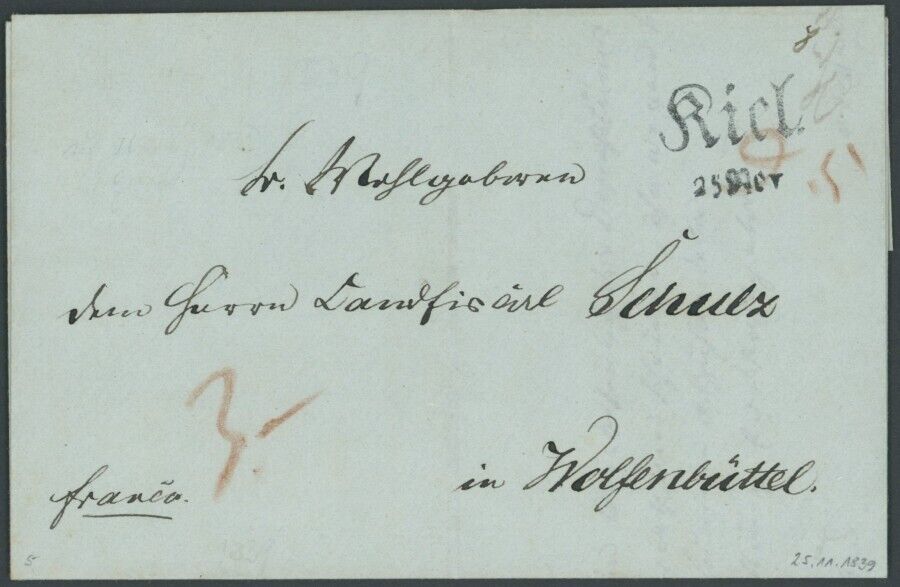 8
Kiel
25 Nov
Sr. Wohlgeboren
dem Herrn Landfiscal Schulz
3
franco.
in Wolfenbüttel.
5
25.11.1839